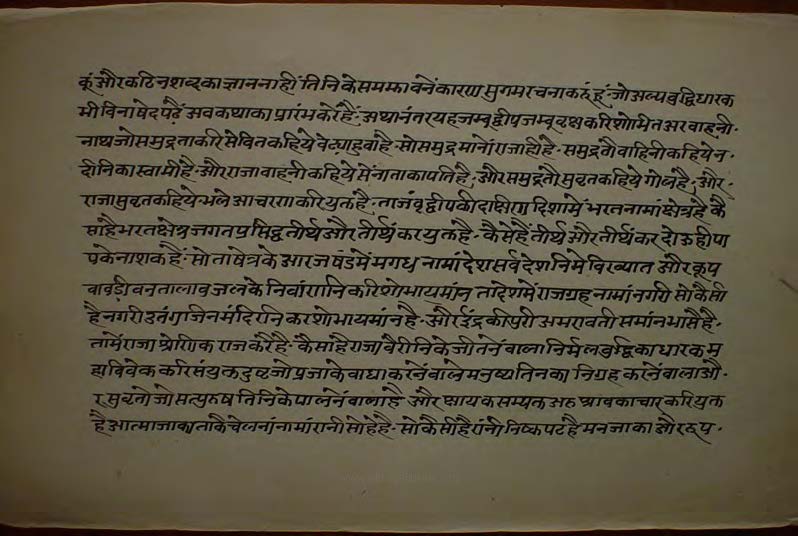 कूं और कठिन शब्द का ज्ञान नाहीं तिनि के समझावनें कारण सुगम रचना करुं हूं जो अल्प बुद्धि धारक
भी विना षेद पढैं अव कथा का प्रारंभ करै हैं अथानंतर यह जम्बूद्वीप जम्बू वृक्ष करि शोभित अर वाहनी
नाथ जो समुद्र ता करि सेवित कहिये वेढ्या हुवा है सो समुद्र मानों राजा ही है समुद्र तौ वाहिनी कहिये न
दीनि का स्वामी है और राजा वाहनी कहिये सेंना ता का पति है और समुद्र तो सुवृत कहिये गोल है और
राजा सुवृत कहिये भले आचरण करि युक्त है ता जंवूद्वीप की दक्षिण दिशा में भरत नामां क्षेत्र है कै
सा है भरत क्षेत्र जगत प्रसिद्ध तीर्थ और तीर्थंकर युक्त है कैसे हैं तीर्थ और तीर्थंकर दोऊ ही पा
प के नाशक हैं सो ता षेत्र के आरज षंड में मगध नामां देश सर्व देशनि में विख्यात और कूप
वावड़ी वन तालाव जल के निवांणनि करि शोभायमांन ता देश में राजग्रह नामां नगरी सो कैसी
है नगरी उतंग जिन मंदिरनि कर शोभायमांन है और इंद्र की पुरी अमरावती समांन भासै है
ता में राजा श्रेणिक राज करै है कैसा है राजा वैरीनि के जीतनें वाला निर्मल बुद्धि का धारक म
हा विवेक करि संयुक्त दुष्ट जो प्रजा के वाधा करनें वाले मनुष्य तिन का निग्रह करनें वाला औ
र सुवृतो जो सत्पुरुष तिनि के पालनें वाला है और क्षायक सम्यक्त अरु श्रावकाचार करि युक्त
है आत्मा जा का ता कै चेलनां नामां रानी सोहै है सो कैसी है रांनी निष्कपट है मन जा का और रूप